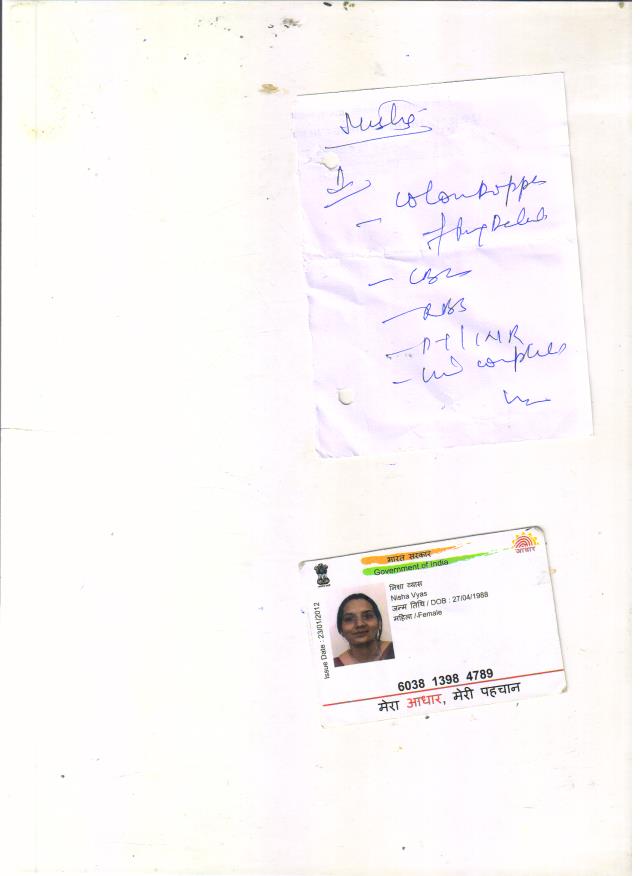 Colour Doppler
- CBC
- RBS
- PT/INR
- complete
भारत सरकार
Government of India
आधार
Issue Date : 23/01/2012
निशा व्यास
Nisha Vyas
जन्म तिथि / DOB : 27/04/1988
महिला / Female
6038 1398 4789
मेरा आधार, मेरी पहचान